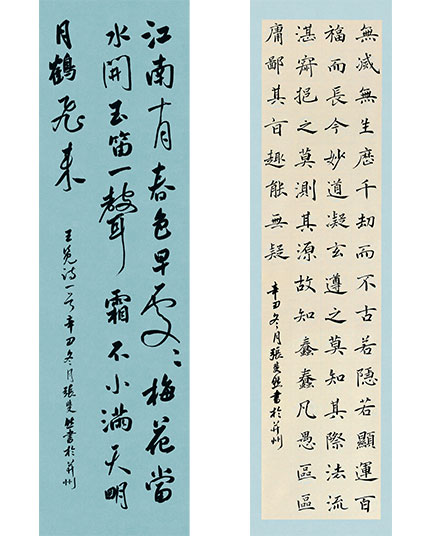 江南十月春色早處〻梅花當
水開玉笛一聲霜不小滿天明
月鶴飛來
王冕詩一首辛丑冬月張書於并州
無滅無生歷千劫而不古若隱若顯運百
福而長今妙道凝玄遵之莫知其際法流
湛寂挹之莫測其源故知蠢蠢凡愚區區
庸鄙其旨趣能無疑
辛丑冬月張書於并州